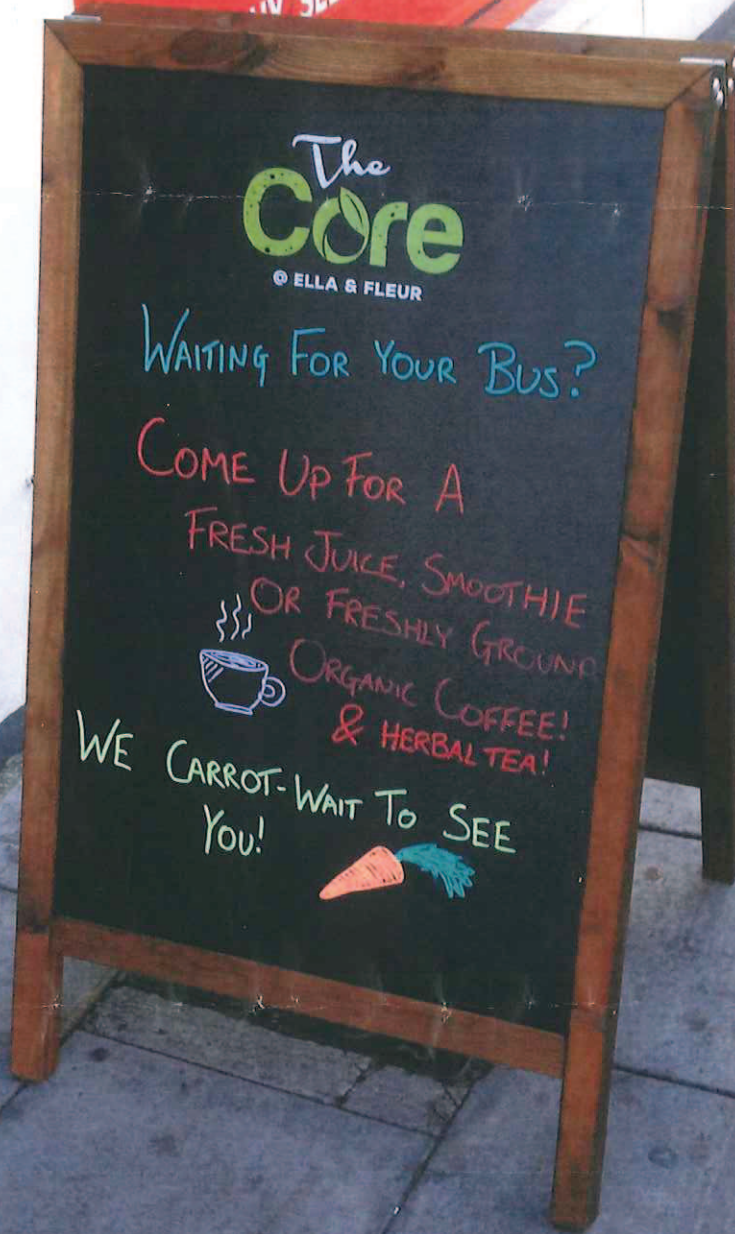 The
Core
@ ELLA & FLEUR
WAITING FOR YOUR BUS?
COME UP FOR A
FRESH JUICE, SMOOTHIE
OR FRESHLY GROUND
ORGANIC COFFEE!
& HERBAL TEA!
WE CARROT-WAIT TO SEE
YOU!